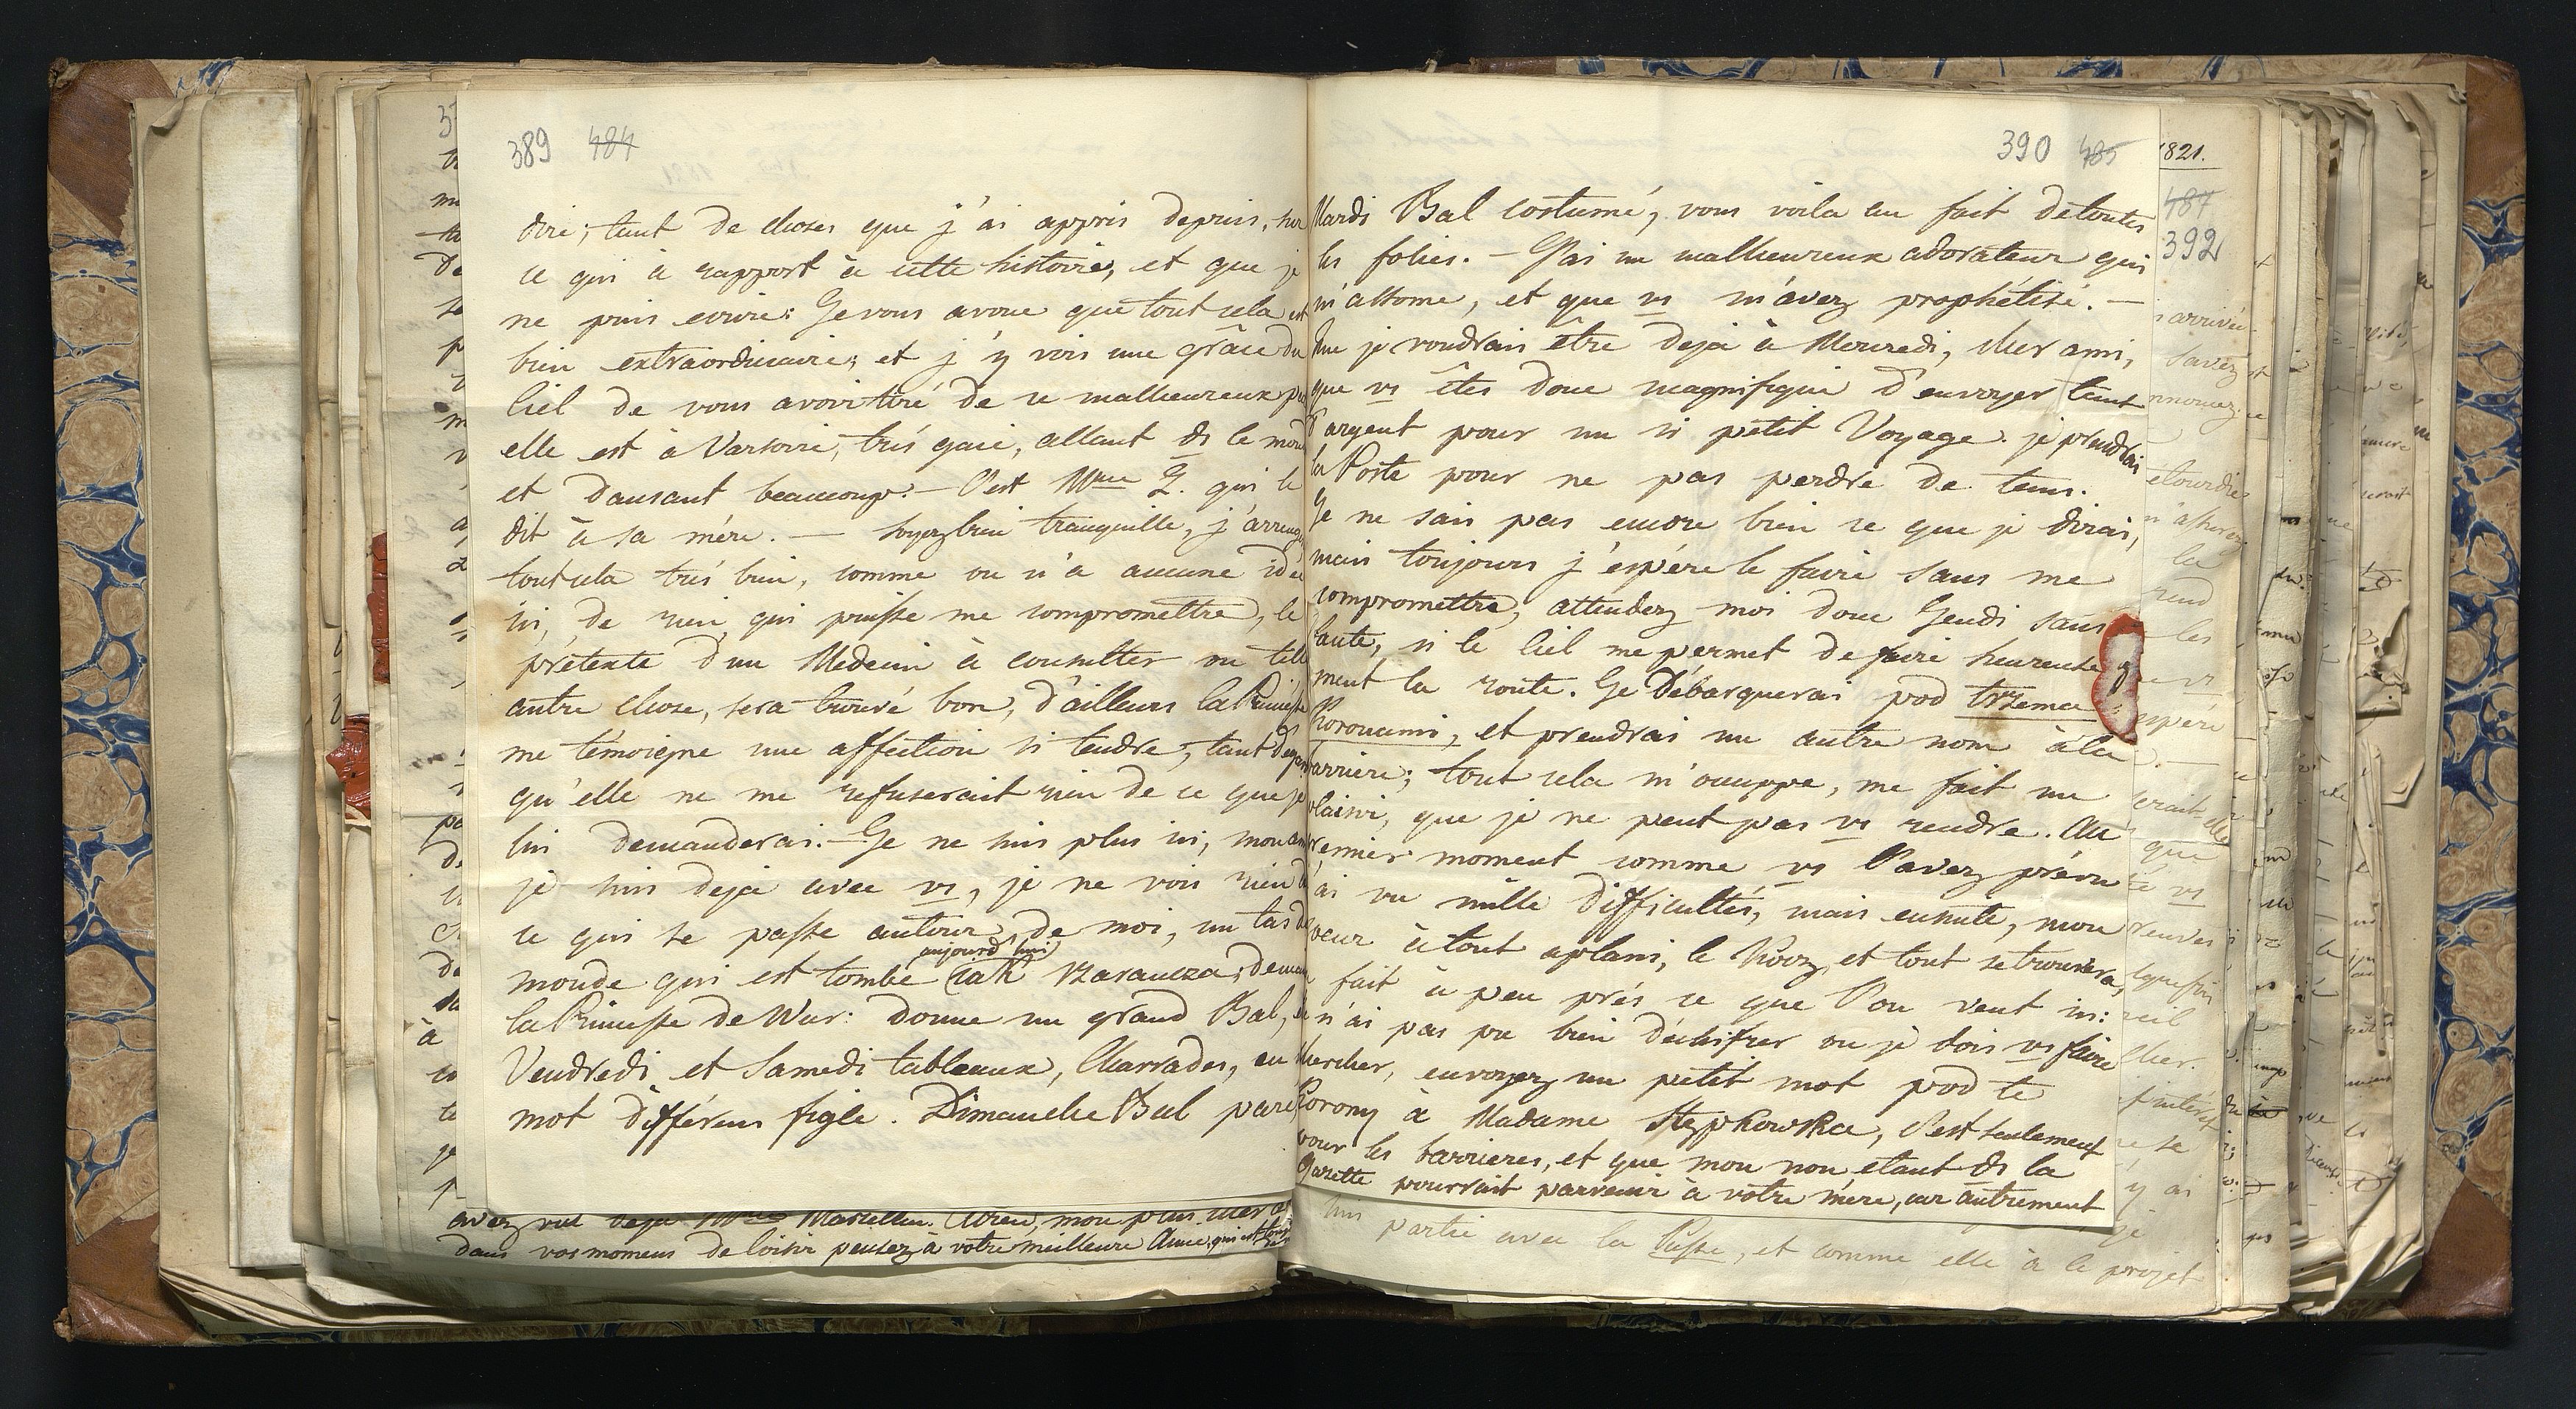 389 484
dire; tant de choses que j'ai appris depuis, sur
ce qui à rapport à cette histoire, et que je
ne puis ecrire: Je vous avoue que tout cela est
bien extraordinaire; et j'y vois une grâce du
Ciel de vous avoir tiré de ce malheureux pas
elle est à Varsovie, trés gaie, allant ds le monde
et dansant beaucoup. — C'est Mme Z. qui le
dit à sa mére. — soyez bien tranquille, j'arrange
tout cela trés bien, comme on n'a aucune idée
ici, de rien qui puisse me compromettre, le
prétexte d'un Medecin à consulter ou telle
autre chose, sera trouvé bon, d'ailleurs la Princesse
me témoigne une affection si tendre, tant
qu'elle ne me refuserait rien de ce que je
lui demanderai. — Je ne suis plus ici, mon ami
je suis deja avec vs, je ne vois rien de
ce qui se passe autour de moi, un tas de
monde qui est tombé aujourd'hui (iak szarancza; demain
la Princesse de Wur: donne un grand Bal,
Vendredi et Samedi tableaux, Charrades, en un
mot différens figle. Dimanche Bal paré
avez vu deja Mme Adieu, mon plus cher
dans vos momens de loisir pensez à votre meilleure Amie, qui est
390 485
Mardi Bal costumé, vous voila au fait de toutes
les folies. — J'ai un malheureux adorateur qui
m'assome, et que vs m'avez prophétisé. —
Que je voudrais être deja à Mercredi, cher ami,
que vs êtes donc magnifique d'envoyer tant
d'argent pour un si petit Voyage. je prendrai
la Poste pour ne pas perdre de tems.
Je ne sais pas encore bien ce que je dirai,
mais toujours j'espére le faire sans me
compromettre, attendez moi donc Jeudi sans
faute, si le Ciel me permet de faire heureuse
ment la route. Je Débarquerai pod trzema
Koronami, et prendrai un autre nom à la
barriére; tout cela m'ouccppe, me fait un
plaisir, que je ne peut pas vs rendre. Au
premier moment comme vs l'avez prévu
j'ai vu mille difficultés, mais ensuite, mon
coeur à tout aplani, le Kocz, et tout se trouvera,
fait à peu prés ce que l'on veut ici:
n'ai pas pu bien déchifrer ou je dois vs faire
chercher, envoyez un petit mot pod te
Korony à Madame Stępkowska, c'est seulement
pour les barriéres, et que mon non etant ds la
Gazette pourrait parvenir à votre mére, car autrement
suis partie avec la Psse, et comme elle à le projet
1821.
487
392